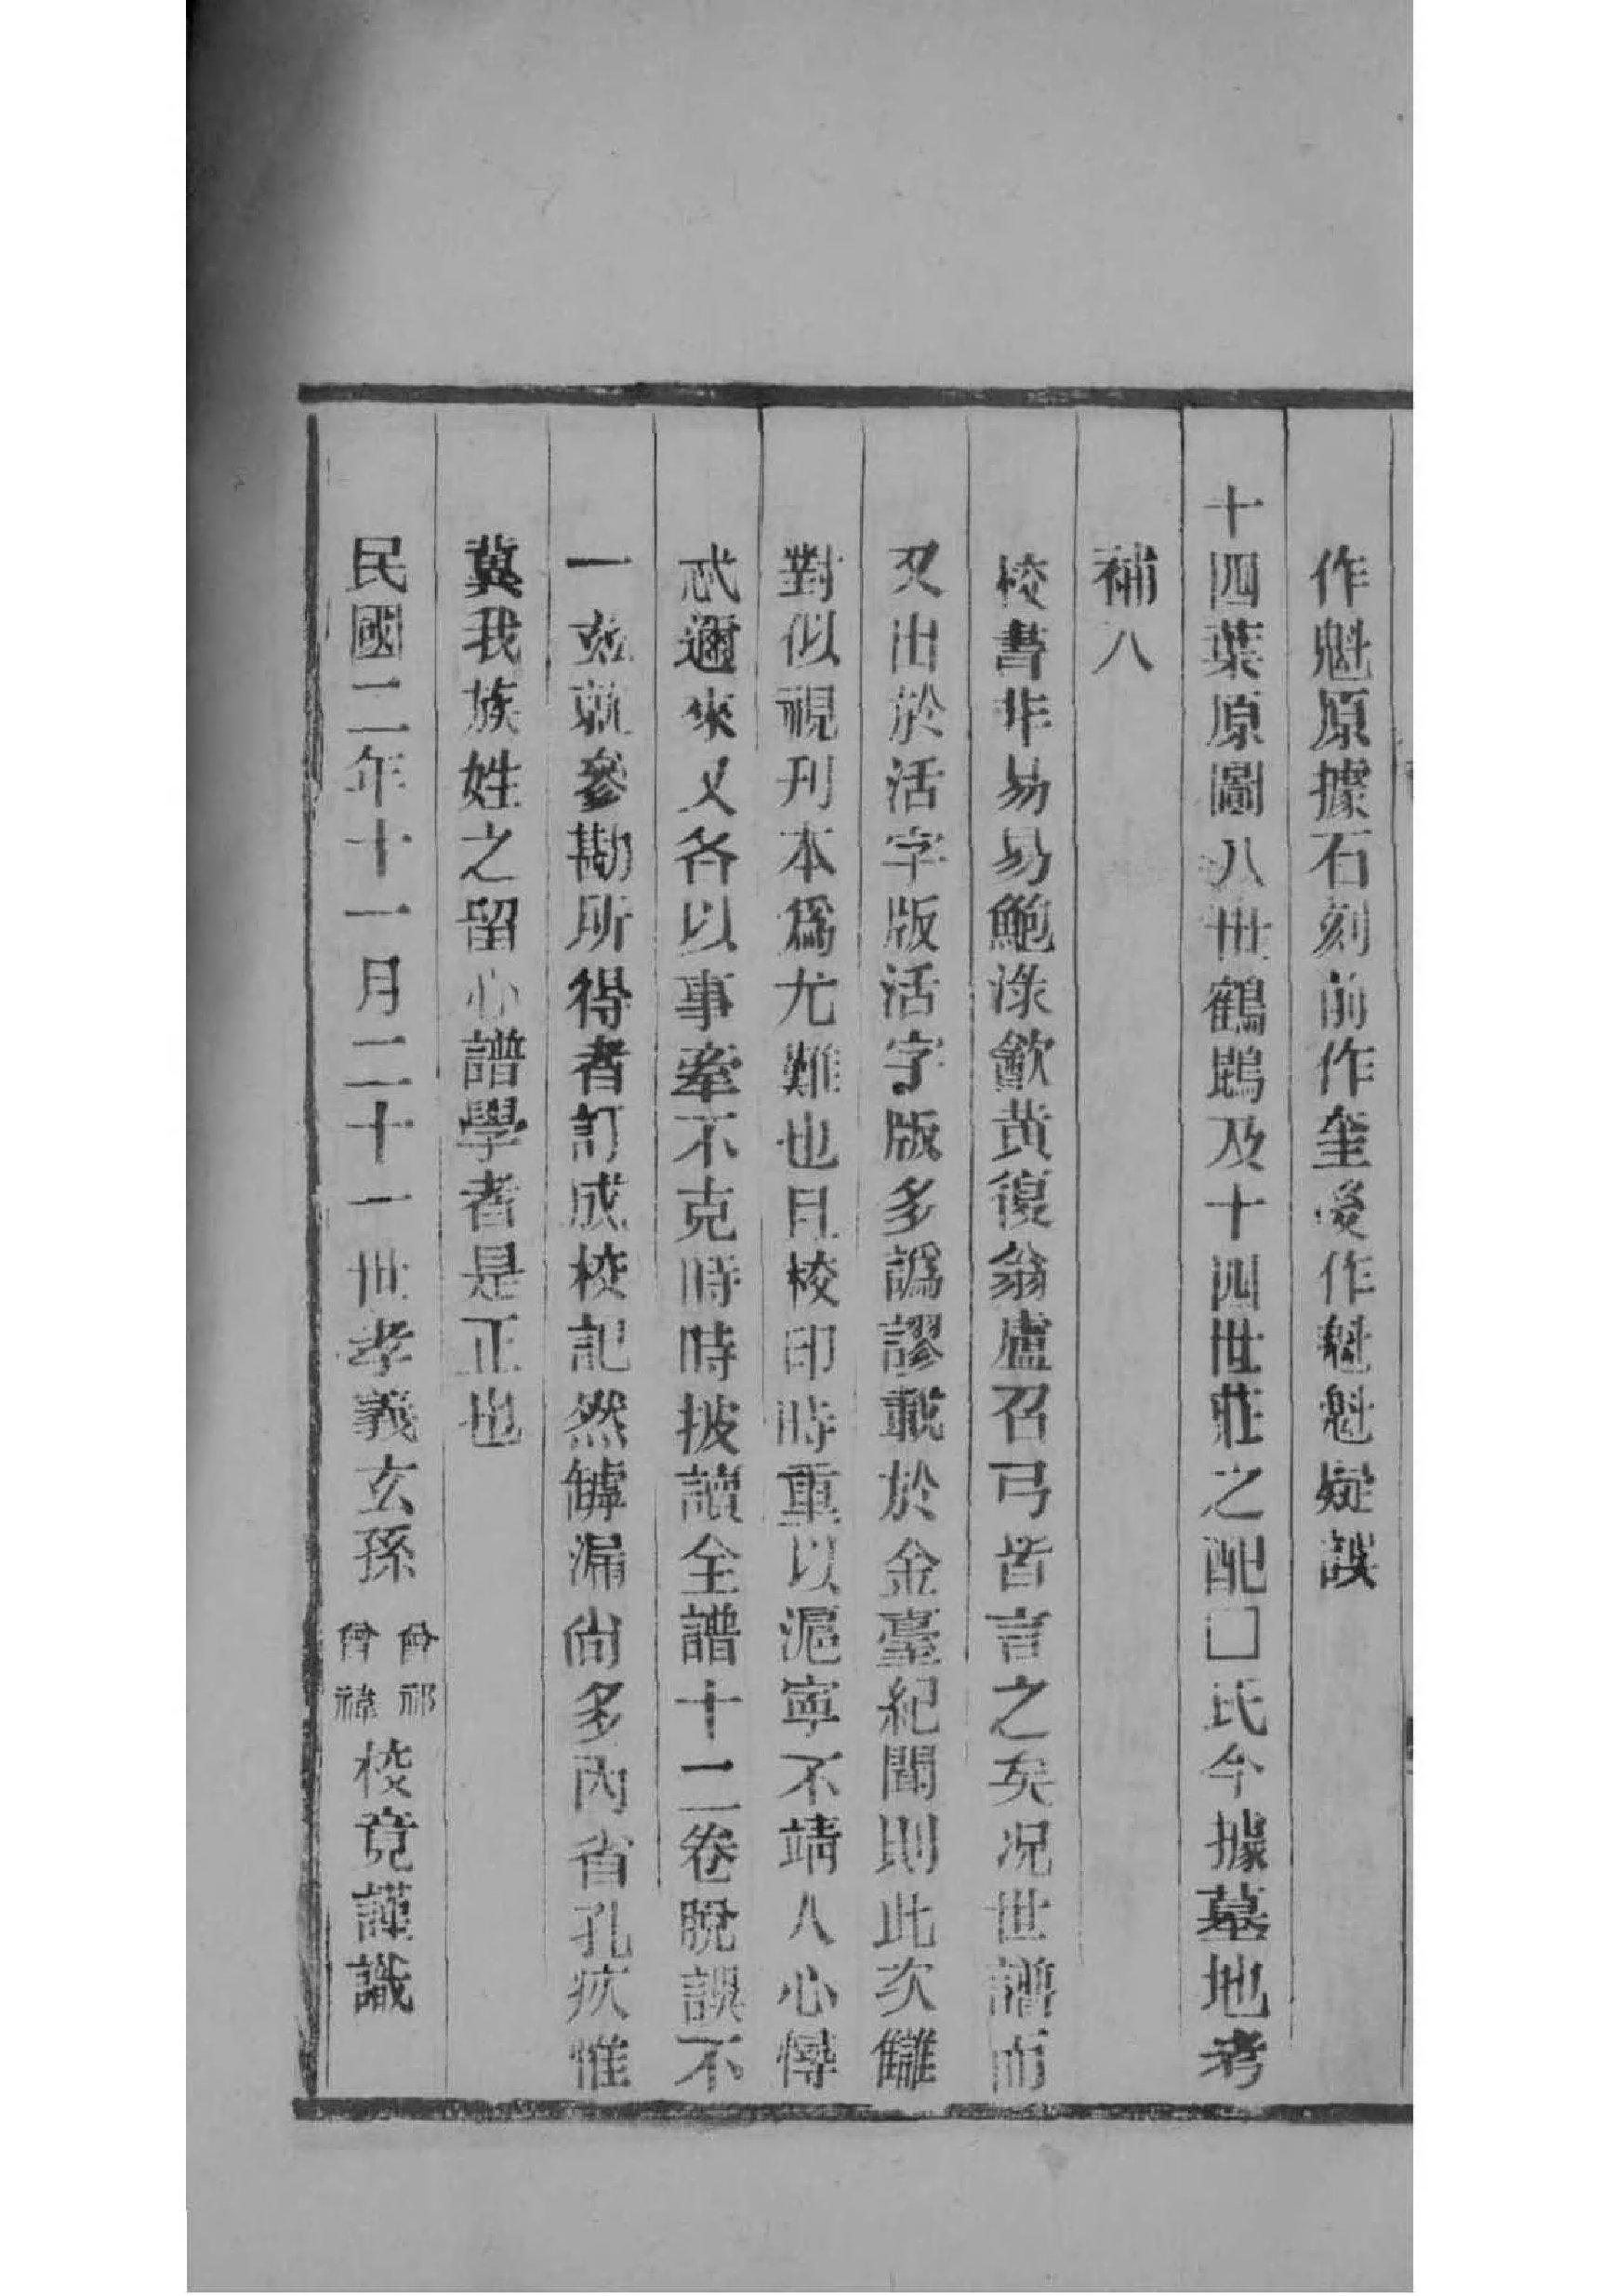 作魁原據石刻前作奎爰作魁魁疑誤
十四葉原圖八世鶴鵾及十四世莊之配□氏今據墓地考
補入
校書非易易鮑淥飮黃復翁盧召弓皆言之矣况世譜而
又出於活字版活字版多譌謬載於金臺紀聞則此次讎
對似視刊本爲尤難也且校印時重以滬寧不靖人心愽
忒邇來又各以事牽不克時時披讀全譜十二卷脫誤不
一兹就參勘所得者訂成校記然罅漏尙多內省孔疚惟
冀我族姓之留心譜學者是正也
民國二年十一月二十一世孝義玄孫曾祁曾禕校竟謹識